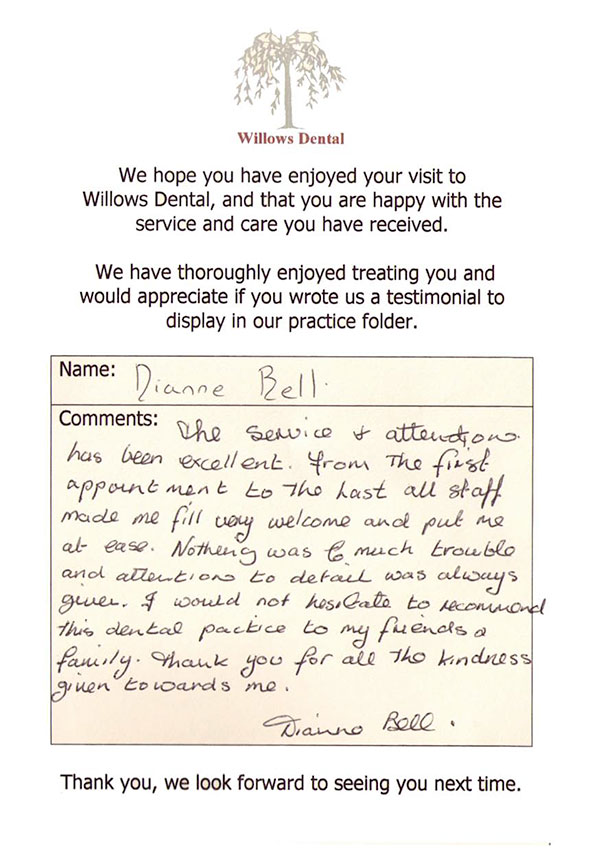 Willows Dental
We hope you have enjoyed your visit to
Willows Dental, and that you are happy with the
service and care you have received.
We have thoroughly enjoyed treating you and
would appreciate if you wrote us a testimonial to
display in our practice folder.
Name: Dianne Bell.
Comments: The service & attentions
has been excellent. From the first
appointment to the last all staff
made me fill very welcome and put me
at ease. Notheng was to much trouble
and attentions to detail was always
given. I would not hesitate to recommend
this dental practice to my friends &
family. Thank you for all the kindness
given towards me.
Dianne Bell.
Thank you, we look forward to seeing you next time.